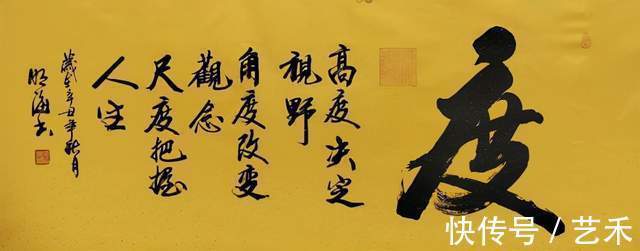 度
高度决定
視野
角度改变
觀念
尺度把握
人生
歲在辛丑年秋月
明海书
快传号 / 艺禾